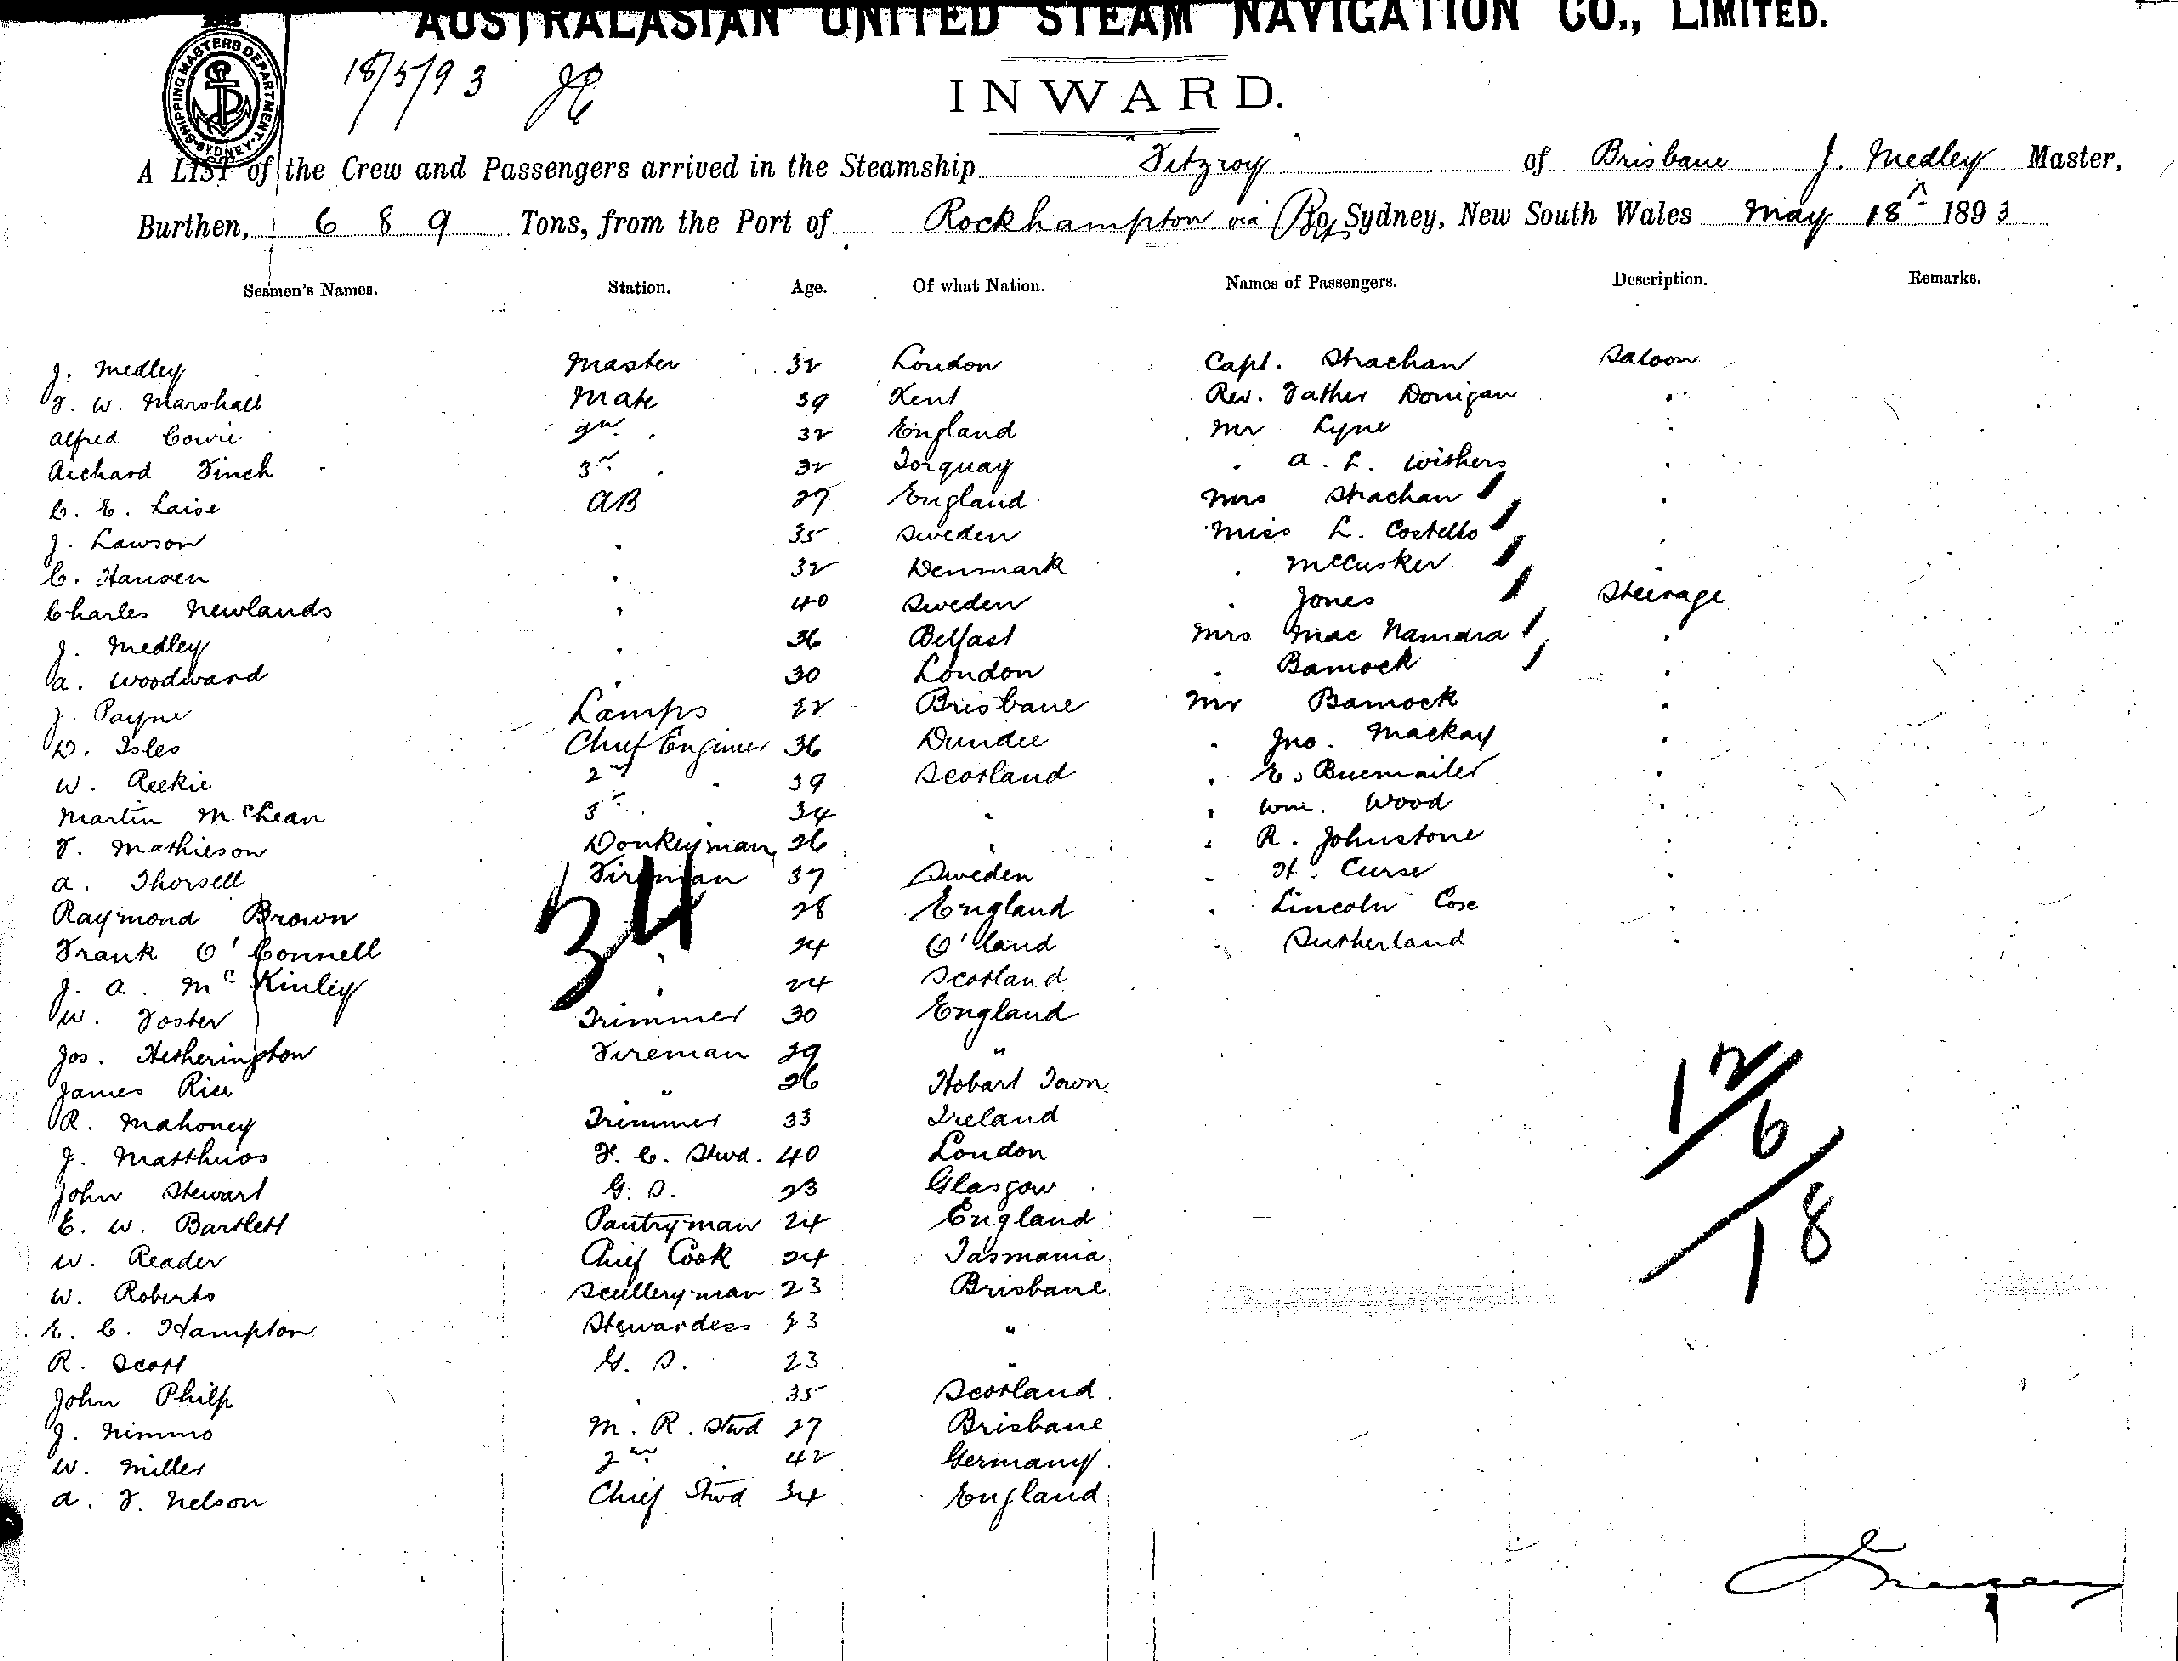 AUSTRALASIAN UNITED STEAM NAVIGATION CO., LIMITED.
SHIPPING MASTERS DEPARTMENT SYDNEY
18/5/93
INWARD.
A LIST of the Crew and Passengers arrived in the Steamship Fitzroy of Brisbane J. Medley Master,
Burthen, 689 Tons, from the Port of Rockhampton via Sydney, New South Wales May 18th 1893
Seamen's Names. Station. Age. Of what Nation. Names of Passengers. Description. Remarks.
J. Medley Master 32 London Capt. Strachan Saloon
F. W. Marshall Mate 39 Kent Rev. Father Donigan "
Alfred Cowie 2nd " 32 England Mr Lyne "
Richard Finch 3rd " 32 Torquay " A. L. Withers "
C. E. Laise AB 27 England Mrs Strachan "
J. Lawson " 35 Sweden Miss L. Costello "
C. Hansen " 32 Denmark " McCusker
Charles Newlands " 40 Sweden " Jones Steerage
J. Medley " 36 Belfast Mrs Mac Namara "
A. Woodward " 30 London " Bamock "
J. Payne Lamps 22 Brisbane Mr Bamock "
D. Isles Chief Engineer 36 Dundee " Jno. Mackay "
W. Reekie 2nd " 39 Scotland " E. "
Martin McLean 3rd " 34 " " Wm. Wood "
F. Mathieson Donkeyman 26 " " R. Johnstone "
A. Thorsell Fireman 37 Sweden " H. Curse "
Raymond Brown " 28 England " Lincoln Cose "
Frank O'Connell " 24 Q'land " Sutherland "
J. A. McKinley " 24 Scotland
34
W. Foster Trimmer 30 England
Jos. Hetherington Fireman 29 "
James Rice " 26 Hobart Town
R. Mahoney Trimmer 33 Ireland
J. Matthews F. C. Stwd. 40 London
John Stewart G. S. 23 Glasgow
E. W. Bartlett Pantryman 24 England
W. Reader Chief Cook 24 Tasmania
W. Roberts Scullery man 23 Brisbane
E. C. Hampton Stewardess 33 "
R. Scott G. S. 23 "
John Philp " 35 Scotland
J. Nimmo M. R. Stwd 27 Brisbane
W. Miller 2nd " 42 Germany
A. F. Nelson Chief Stwd 34 England
12/6/18